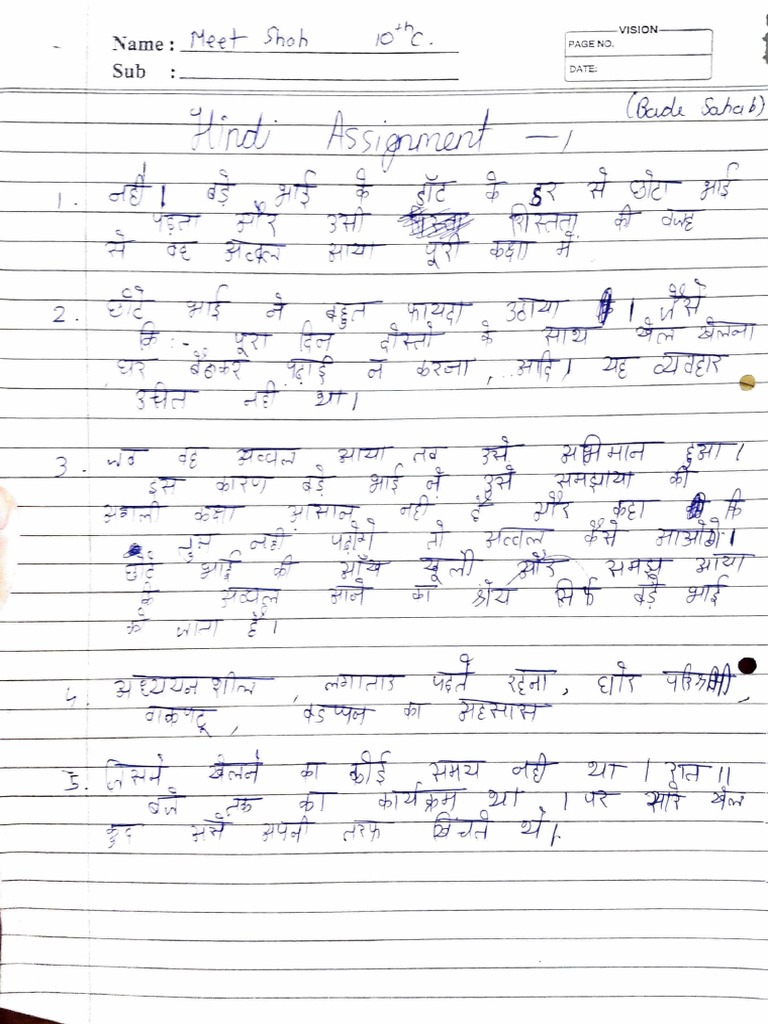 Name : Meet Shah 10th C.
VISION
PAGE NO.
Sub :
DATE:
(Bade Sahab)
Hindi Assignment - 1
1. नहीं। बड़े भाई के डाँट के डर से छोटा भाई
पढ़ता और उसी शिस्तता की वजह
से वह अव्वल आया पूरी कक्षा में
2. छोटे भाई ने बहुत फायदा उठाया । जैसे
कि :- पूरा दिन दोस्तो के साथ खेल खेलना
घर बैठकर पढ़ाई न करना, ..आदि। यह व्यवहार
उचित नहीं था।
3. जब वह अव्वल आया तब उसे अभिमान हुआ।
इस कारण बड़े भाई ने उसे समझाया की
अगली कक्षा आसान नहीं है और कहा कि
तुम नहीं पढ़ोगे तो अव्वल कैसे आओगे।
छोटे भाई की आँख खूली और समझ आया
कि अव्वल आने का श्रेय सिर्फ बड़े भाई
को जाता है।
4. अध्ययनशील, लगातार पढ़ते रहना, घोर परिश्रमी,
वाकपटू, बडप्पन का अहसास
5. जिसमे खेलने का कोई समय नही था। रात 11
बजे तक का कार्यक्रम था । पर सारे खेल
कुद उसे अपनी तरफ खिंचते थे।